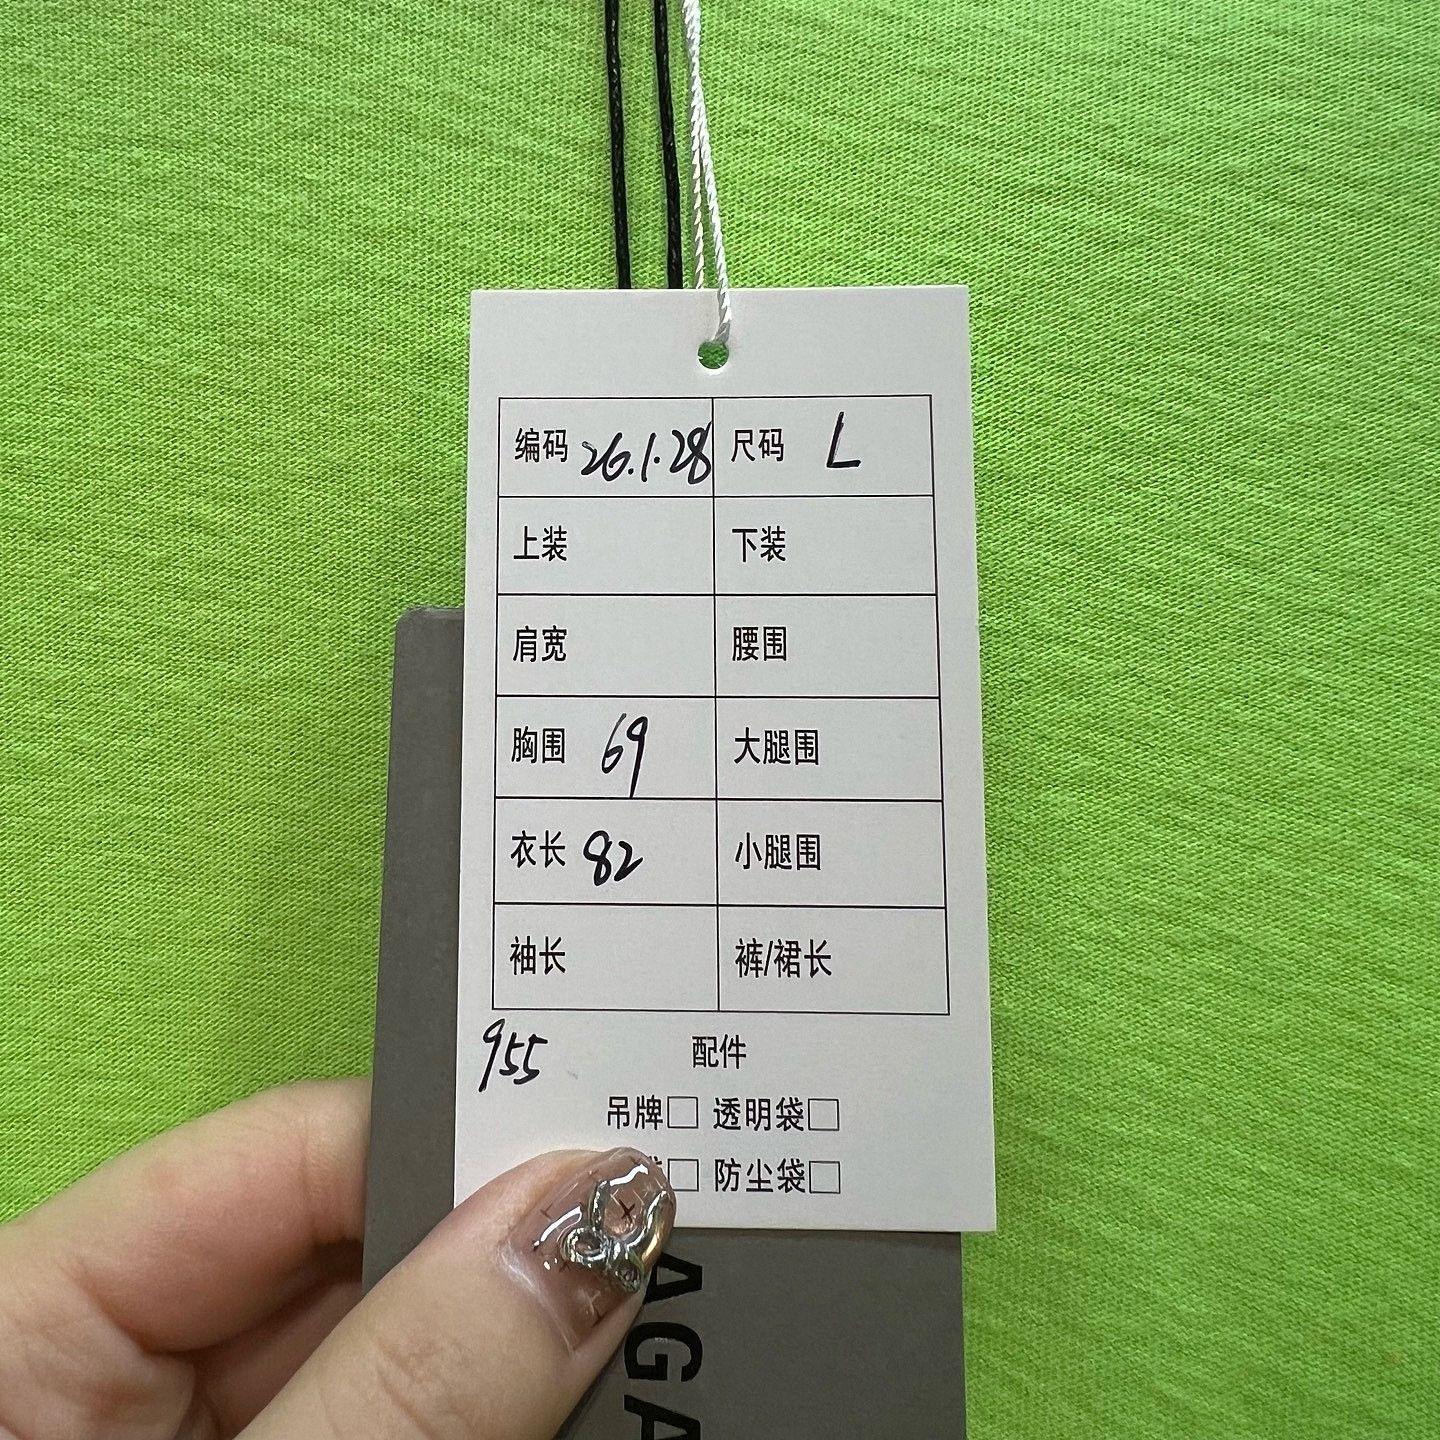 编码 26.1.28 尺码 L
上装 下装
肩宽 腰围
胸围 69 大腿围
衣长 82 小腿围
袖长 裤/裙长
955 配件
吊牌□ 透明袋□
□ 防尘袋□
AGA